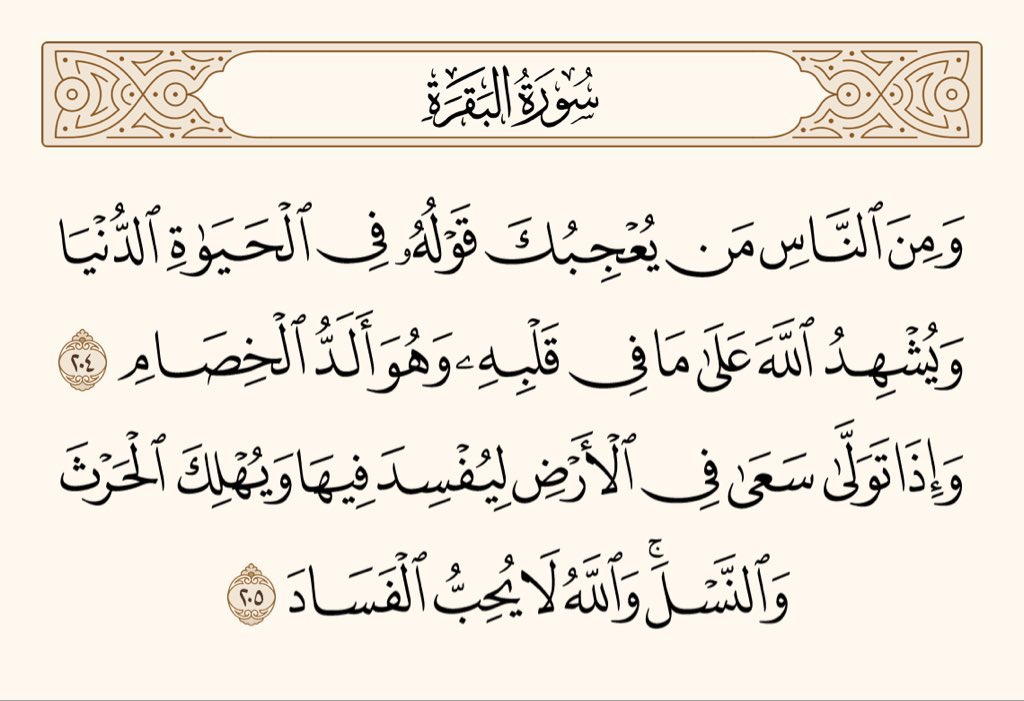 سُورَةُ البَقَرَةِ
وَمِنَ ٱلنَّاسِ مَن يُعۡجِبُكَ قَوۡلُهُۥ فِي ٱلۡحَيَوٰةِ ٱلدُّنۡيَا
وَيُشۡهِدُ ٱللَّهَ عَلَىٰ مَا فِي قَلۡبِهِۦ وَهُوَ أَلَدُّ ٱلۡخِصَامِ ٢٠٤
وَإِذَا تَوَلَّىٰ سَعَىٰ فِي ٱلۡأَرۡضِ لِيُفۡسِدَ فِيهَا وَيُهۡلِكَ ٱلۡحَرۡثَ
وَٱلنَّسۡلَۚ وَٱللَّهُ لَا يُحِبُّ ٱلۡفَسَادَ ٢٠٥